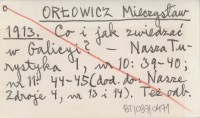 ORŁOWICZ Mieczysław
1913. Co i jak zwiedzać
w Galicyi? – Nasza Tu-
rystyka 1, nr 10: 39-40;
nr 11: 44-45 (dod. do: Nasze
Zdroje 4, nr 13 i 14). Też odb.